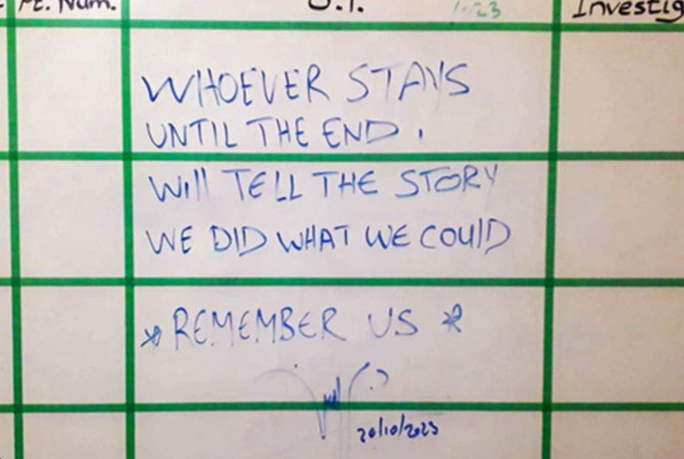 Pt. Num.
Investig
WHOEVER STAYS
UNTIL THE END.
Will TELL THE STORY
WE DID WHAT WE COULD
* REMEMBER US *
20/10/2023